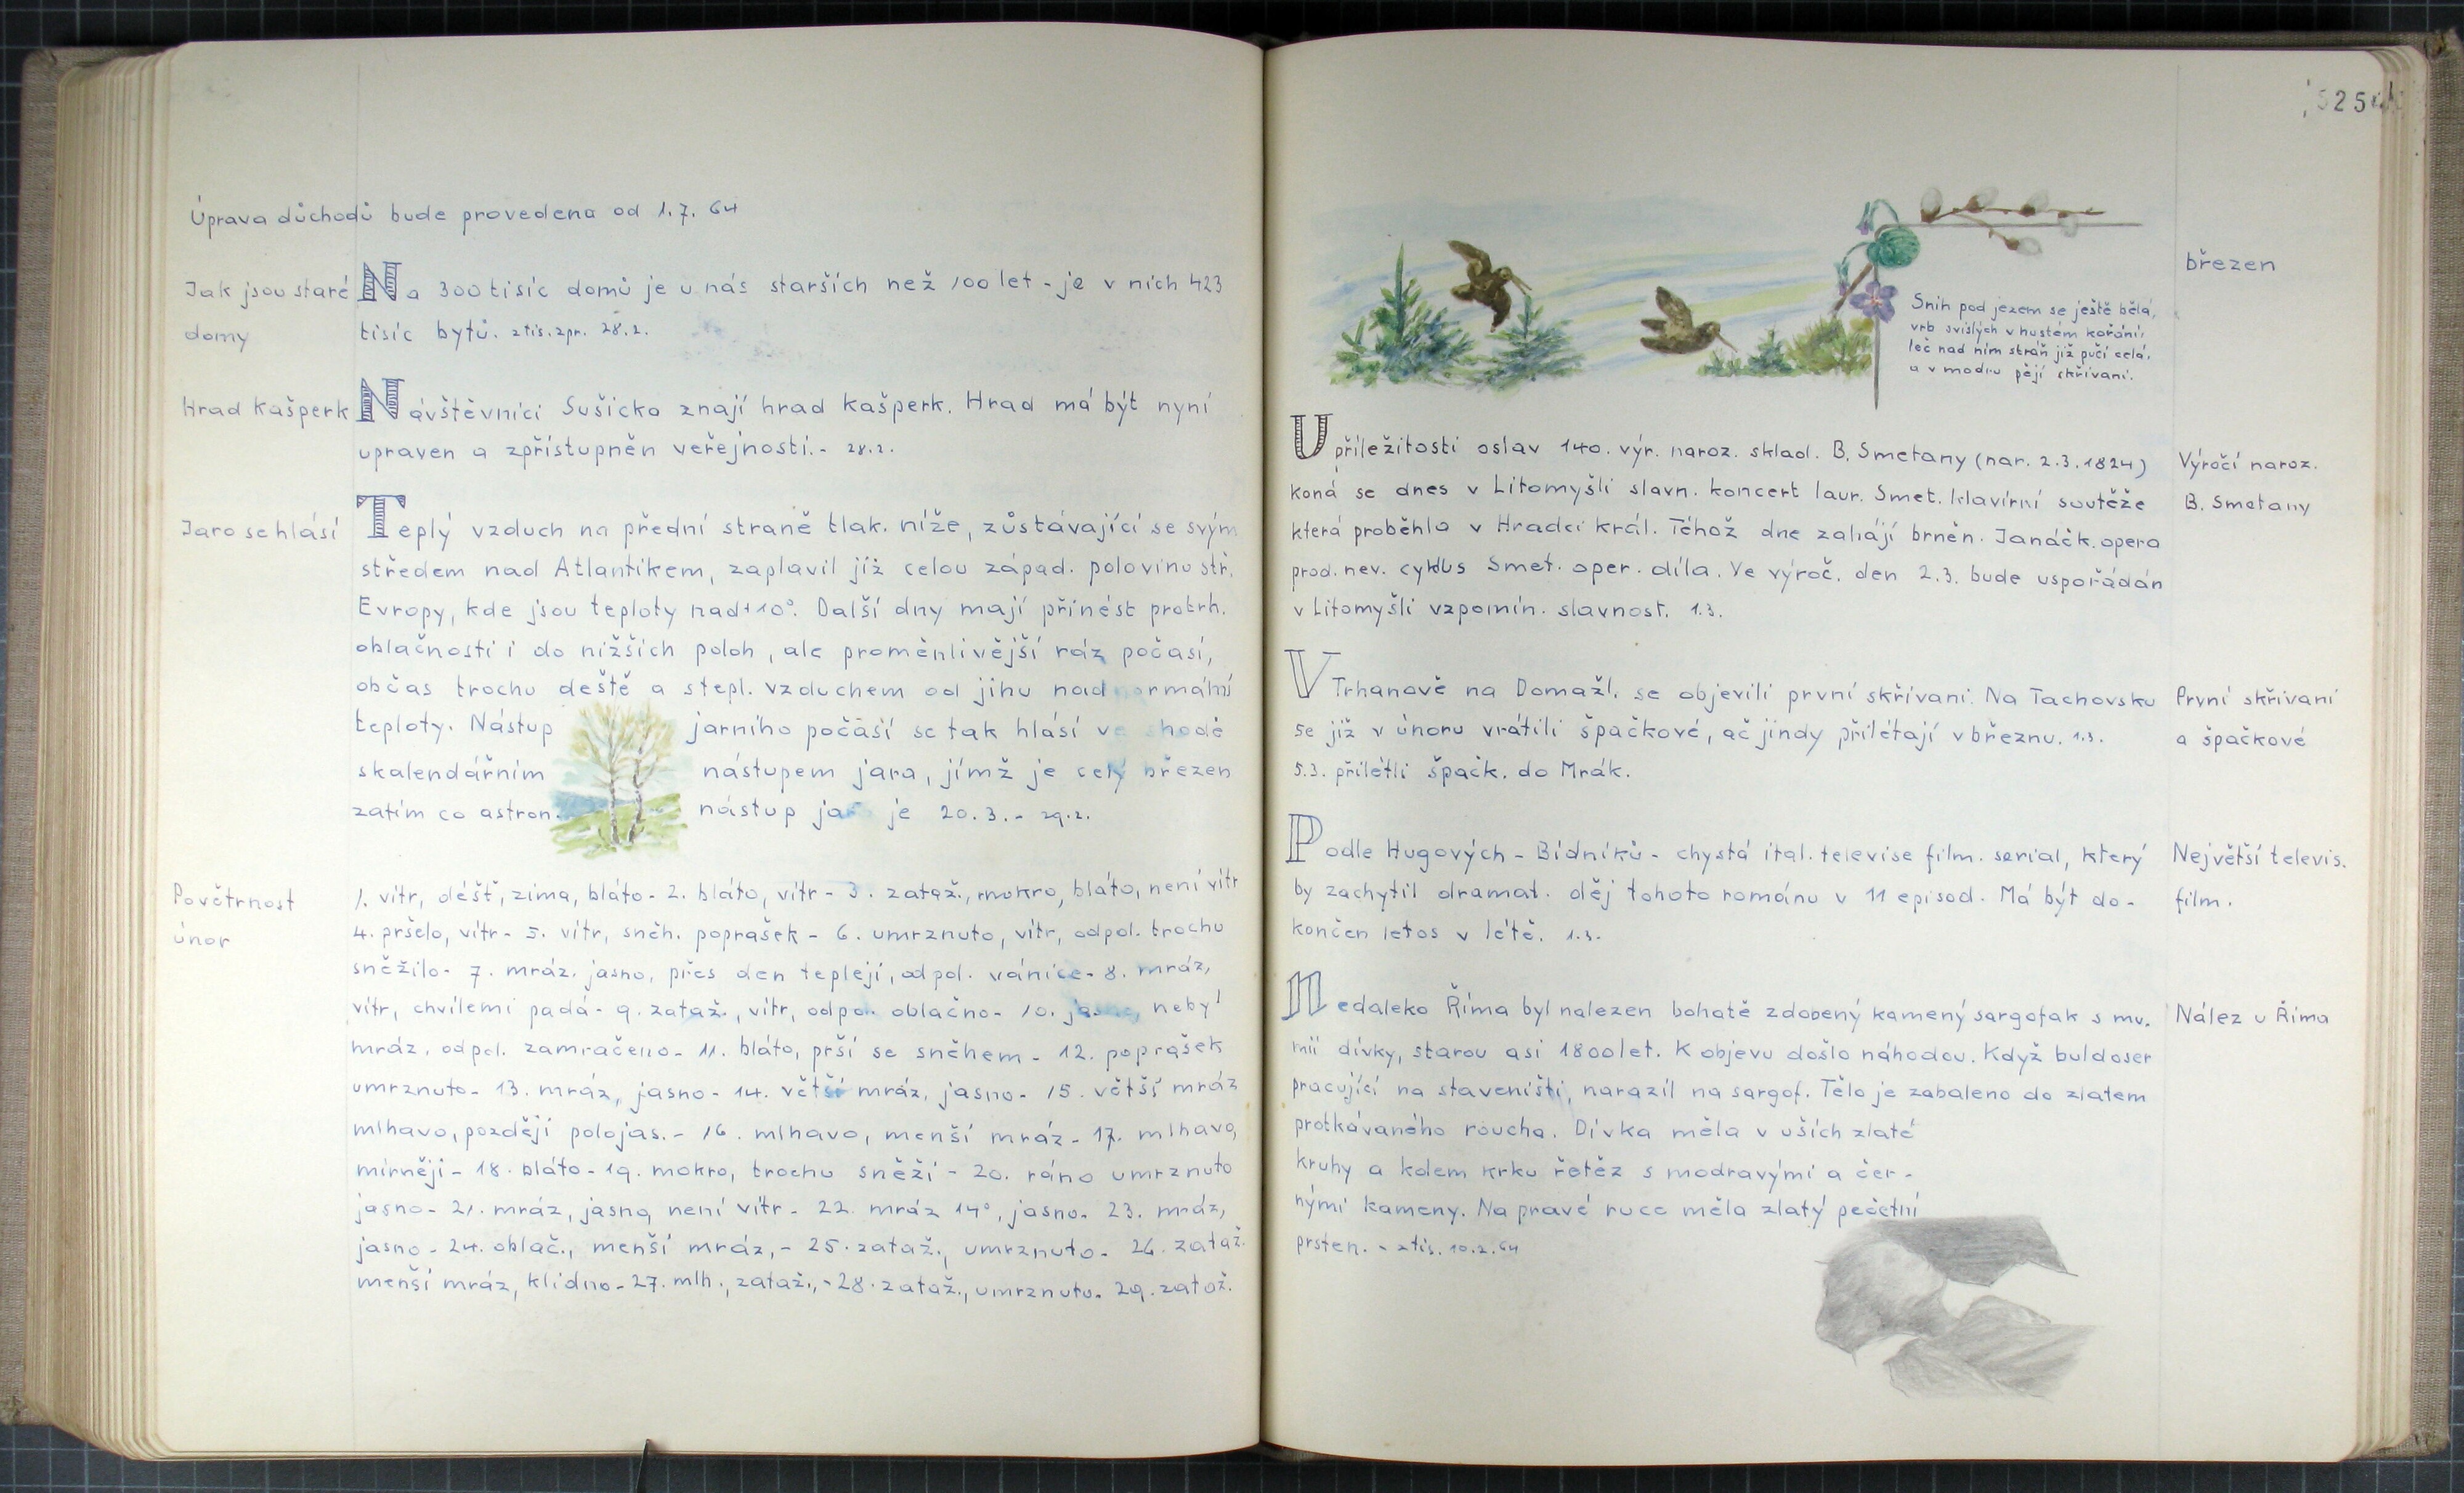 Úprava důchodů bude provedena od 1.7. 64
Jak jsou staré
domy
Na 300 tisíc domů je u nás starších než 100 let - je v nich 423
tisíc bytů. z tis. zpr. 28.2.
Hrad Kašperk
Návštěvníci Sušicka znají hrad Kašperk. Hrad má být nyní
upraven a zpřístupněn veřejnosti. - 28.2.
Jaro se hlásí
Teplý vzduch na přední straně tlak. níže, zůstávající se svým
středem nad Atlantikem, zaplavil již celou západ. polovinu stř.
Evropy, kde jsou teploty nad +10°. Další dny mají přinést protrh.
oblačnosti i do nižších poloh, ale proměnlivější ráz počasí,
občas trochu deště a s tepl. vzduchem od jihu nadnormální
teploty. Nástup jarního počasí se tak hlásí ve shodě
s kalendářním nástupem jara, jímž je celý březen
zatím co astron. nástup jara je 20.3. - 29.2.
Povětrnost
únor
1. vítr, déšť, zima, bláto - 2. bláto, vítr - 3. zataž., mokro, bláto, není vítr
4. pršelo, vítr - 5. vítr, sněh. poprašek - 6. umrznuto, vítr, odpol. trochu
sněžilo - 7. mráz. jasno, přes den tepleji, odpol. vánice - 8. mráz,
vítr, chvílemi padá - 9. zataž., vítr, odpol. oblačno - 10. jasno, nebyl
mráz, odpol. zamračeno - 11. bláto, prší se sněhem - 12. poprašek
umrznuto - 13. mráz, jasno - 14. větší mráz, jasno - 15. větší mráz
mlhavo, později polojas. - 16. mlhavo, menší mráz - 17. mlhavo,
mírněji - 18. bláto - 19. mokro, trochu sněží - 20. ráno umrznuto
jasno - 21. mráz, jasno, není vítr - 22. mráz 14°, jasno. 23. mráz,
jasno - 24. oblač., menší mráz, - 25. zataž., umrznuto - 26. zataž.
menší mráz, klidno - 27. mlh., zataž., - 28. zataž., umrznuto. 29. zataž.
březen
Sníh pod jezem se ještě bělá,
vrb svislých v hustém koření,
leč nad ním stráň již pučí celá,
a v modru pějí skřivani.
U příležitosti oslav 140. výr. naroz. sklad. B. Smetany (nar. 2.3.1824)
koná se dnes v Litomyšli slavn. koncert laur. Smet. klavírní soutěže
která proběhla v Hradci král. Téhož dne zahájí brněn. Janáčk. opera
prod. nev. cyklus Smet. oper. díla. Ve výroč. den 2.3. bude uspořádán
v Litomyšli vzpomín. slavnost. 1.3.
Výročí naroz.
B. Smetany
V Trhanově na Domažl. se objevili první skřivani. Na Tachovsku
se již v únoru vrátili špačkové, ač jindy přilétají v březnu. 1.3.
5.3. přilétli špačk. do Mrák.
První skřivani
a špačkové
Podle Hugových - Bídníků - chystá ital. televise film. serial, který
by zachytil dramat. děj tohoto románu v 11 episod. Má být do-
končen letos v létě. 1.3.
Největší televis.
film.
Nedaleko Říma byl nalezen bohatě zdobený kamený sargofak s mu.
mií dívky, starou asi 1800 let. K objevu došlo náhodou. Když buldoser
pracující na staveništi, narazil na sargof. Tělo je zabaleno do zlatem
protkávaného roucha. Dívka měla v uších zlaté
kruhy a kolem krku řetěz s modravými a čer-
nými kameny. Na pravé ruce měla zlatý pečetní
prsten. - z tis. 10.2.64
Nález u Říma